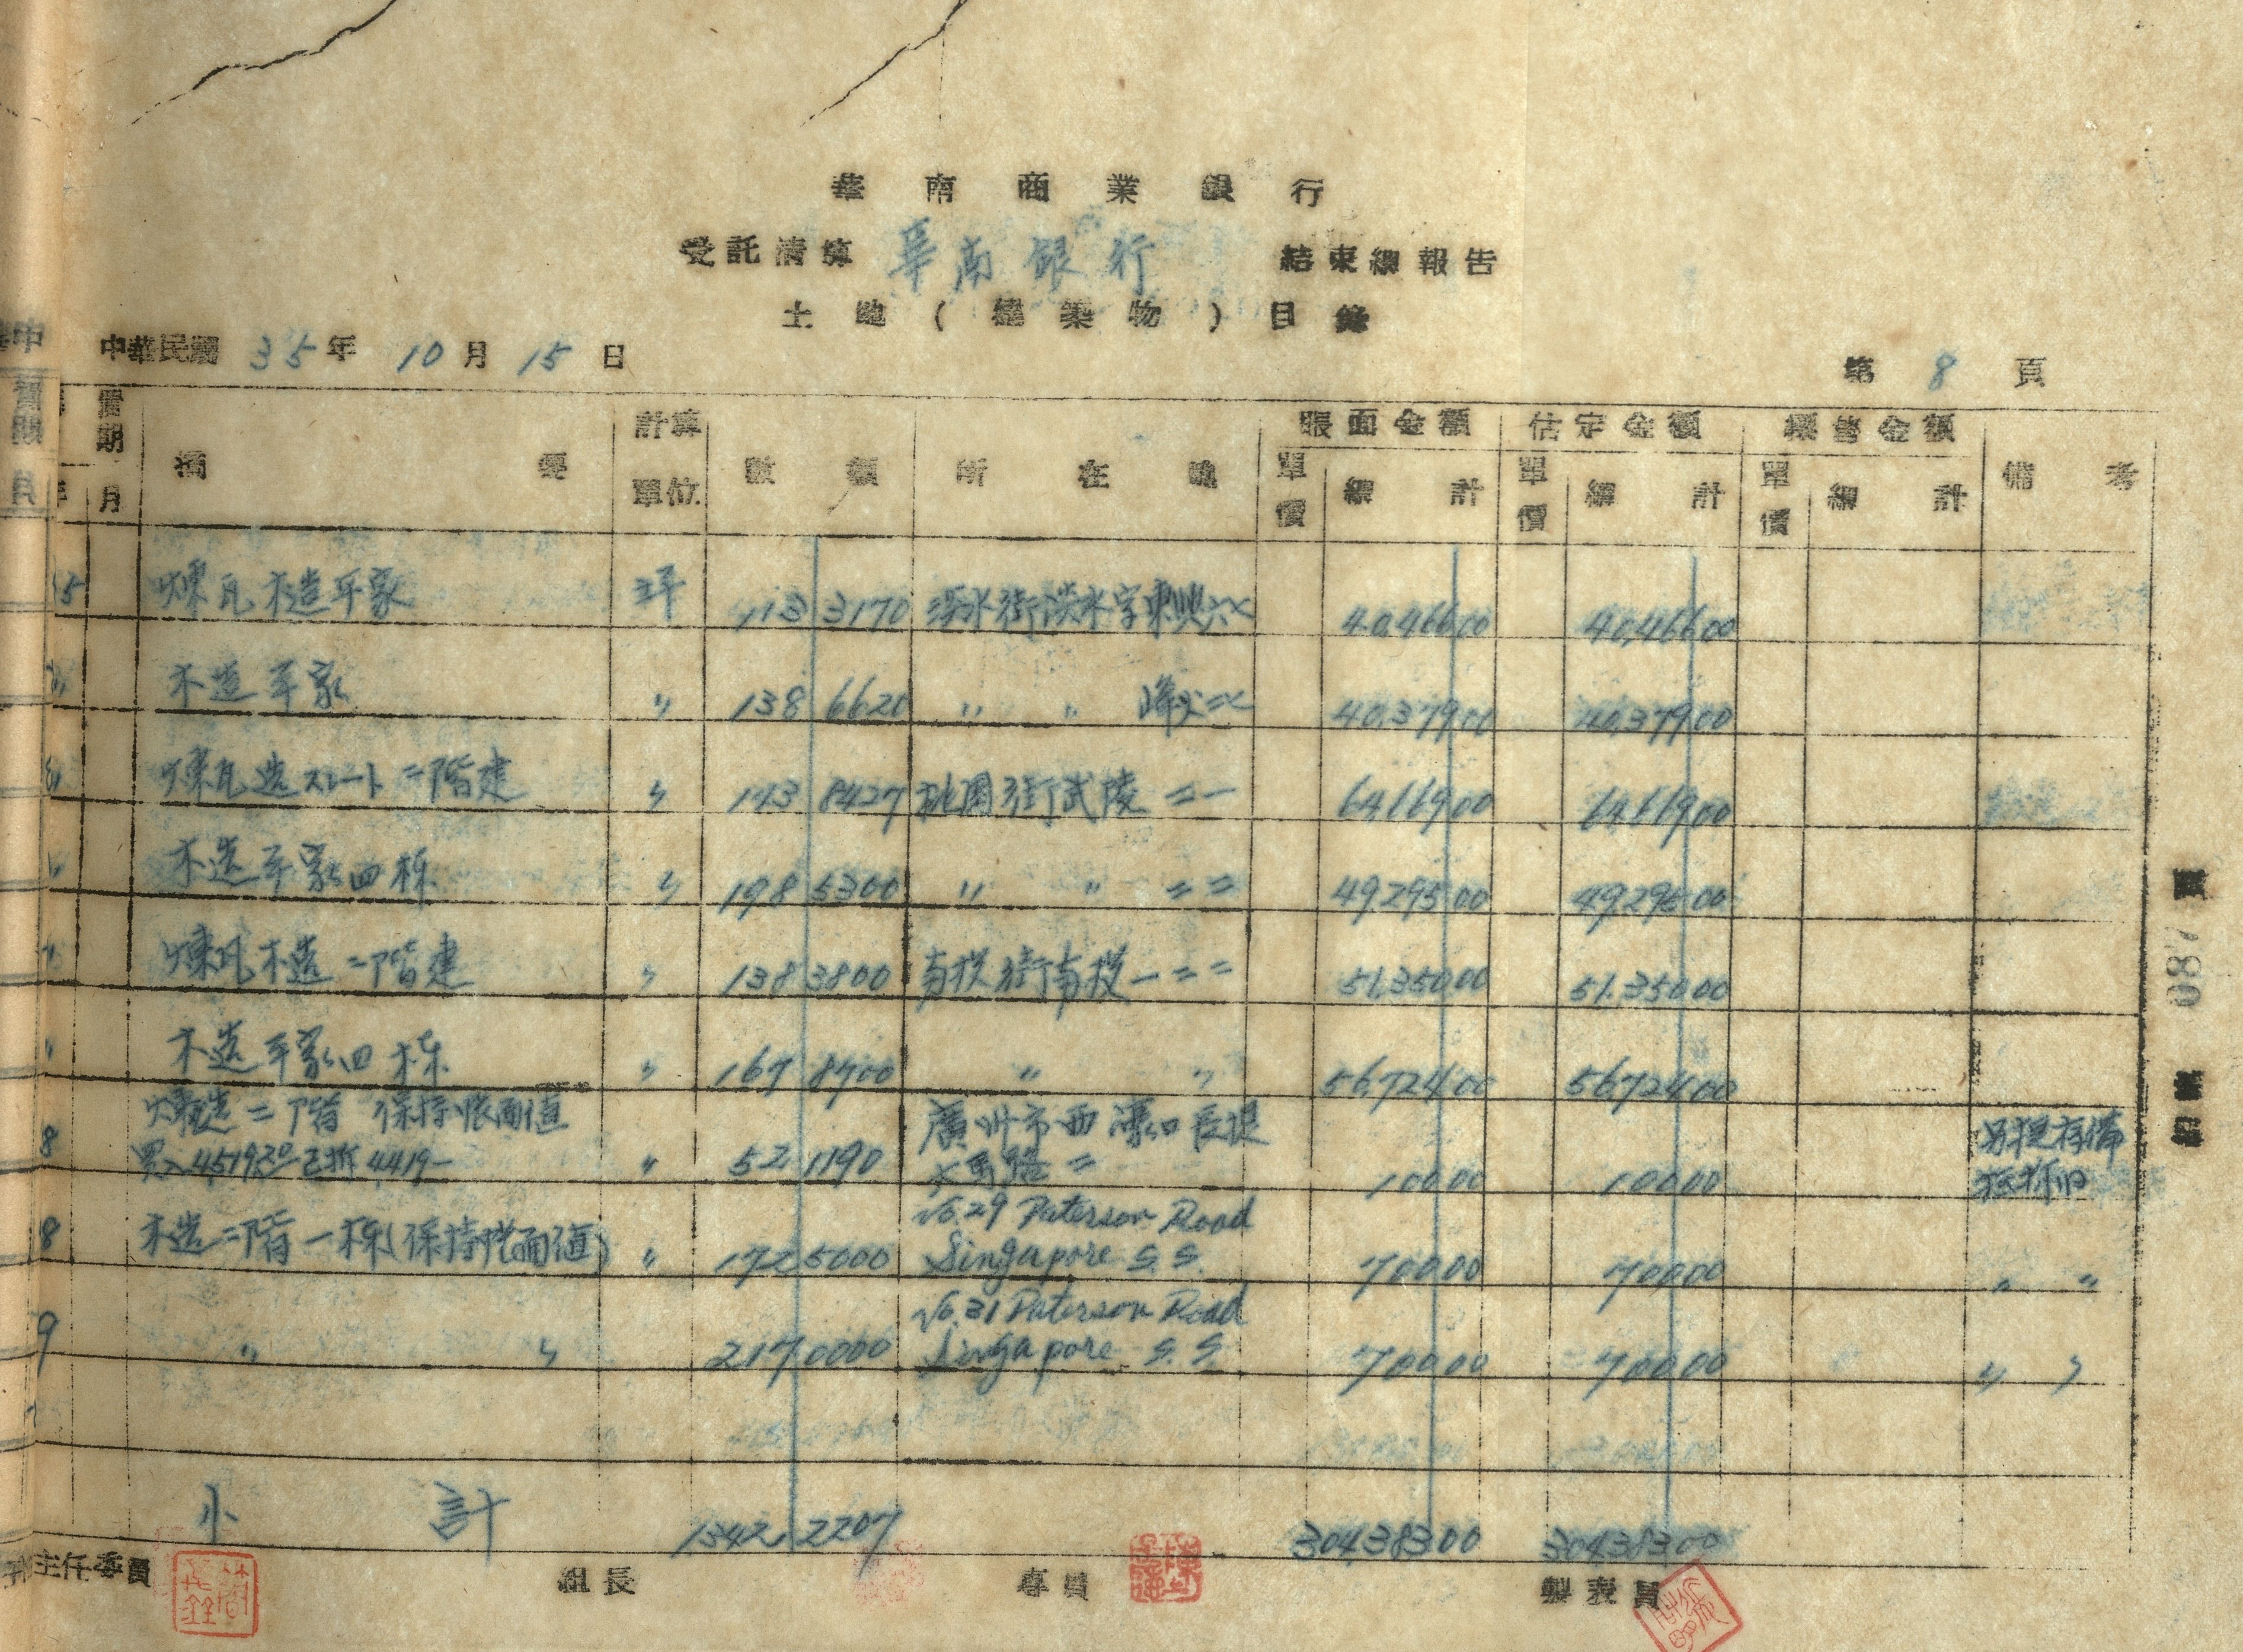 華南商業銀行
受託清算 華南銀行 結束總報告
土地(建築物)目錄
中華民國 35年 10月 15日
第 8 頁
摘 要 計算單位 數 額 所 在 地 賬面金額 單價 總計 估定金額 單價 總計 單價 總計 備考
煉瓦木造平家 坪 113 3170 淡水街淡水字東興六× 40,466 00 40,466 00
木造平家 〃 138 6620 〃 〃 40,379 00 40,379 00
煉瓦造スレート二階建 〃 143 8427 桃園街武陵 二一 64,669 00 64,669 00
木造平家四栋 〃 198 5300 〃 〃 二二 49,295 00 49,295 00
煉瓦木造二階建 〃 138 3800 南投街南投一二二 51,350 00 51,350 00
木造平家四栋 〃 167 8700 〃 〃 56,724 00 56,724 00
煉造二階 保持帳面值 廣州市西濠口長堤
買入 45192.20 已折 4419- 〃 52 1190 大馬路二 100 00 100 00 另提存備抵折旧
No.29 Paterson Road
木造二階一栋(保持帳面值) 〃 172 5000 Singapore S.S. 700 00 700 00 〃 〃
No.31 Paterson Road
〃 〃 217 0000 Singapore S.S. 700 00 700 00 〃 〃
小 計 1342 2207 304,383 00 304,383 00
主任委員 組長 專員 製表員
087 頁